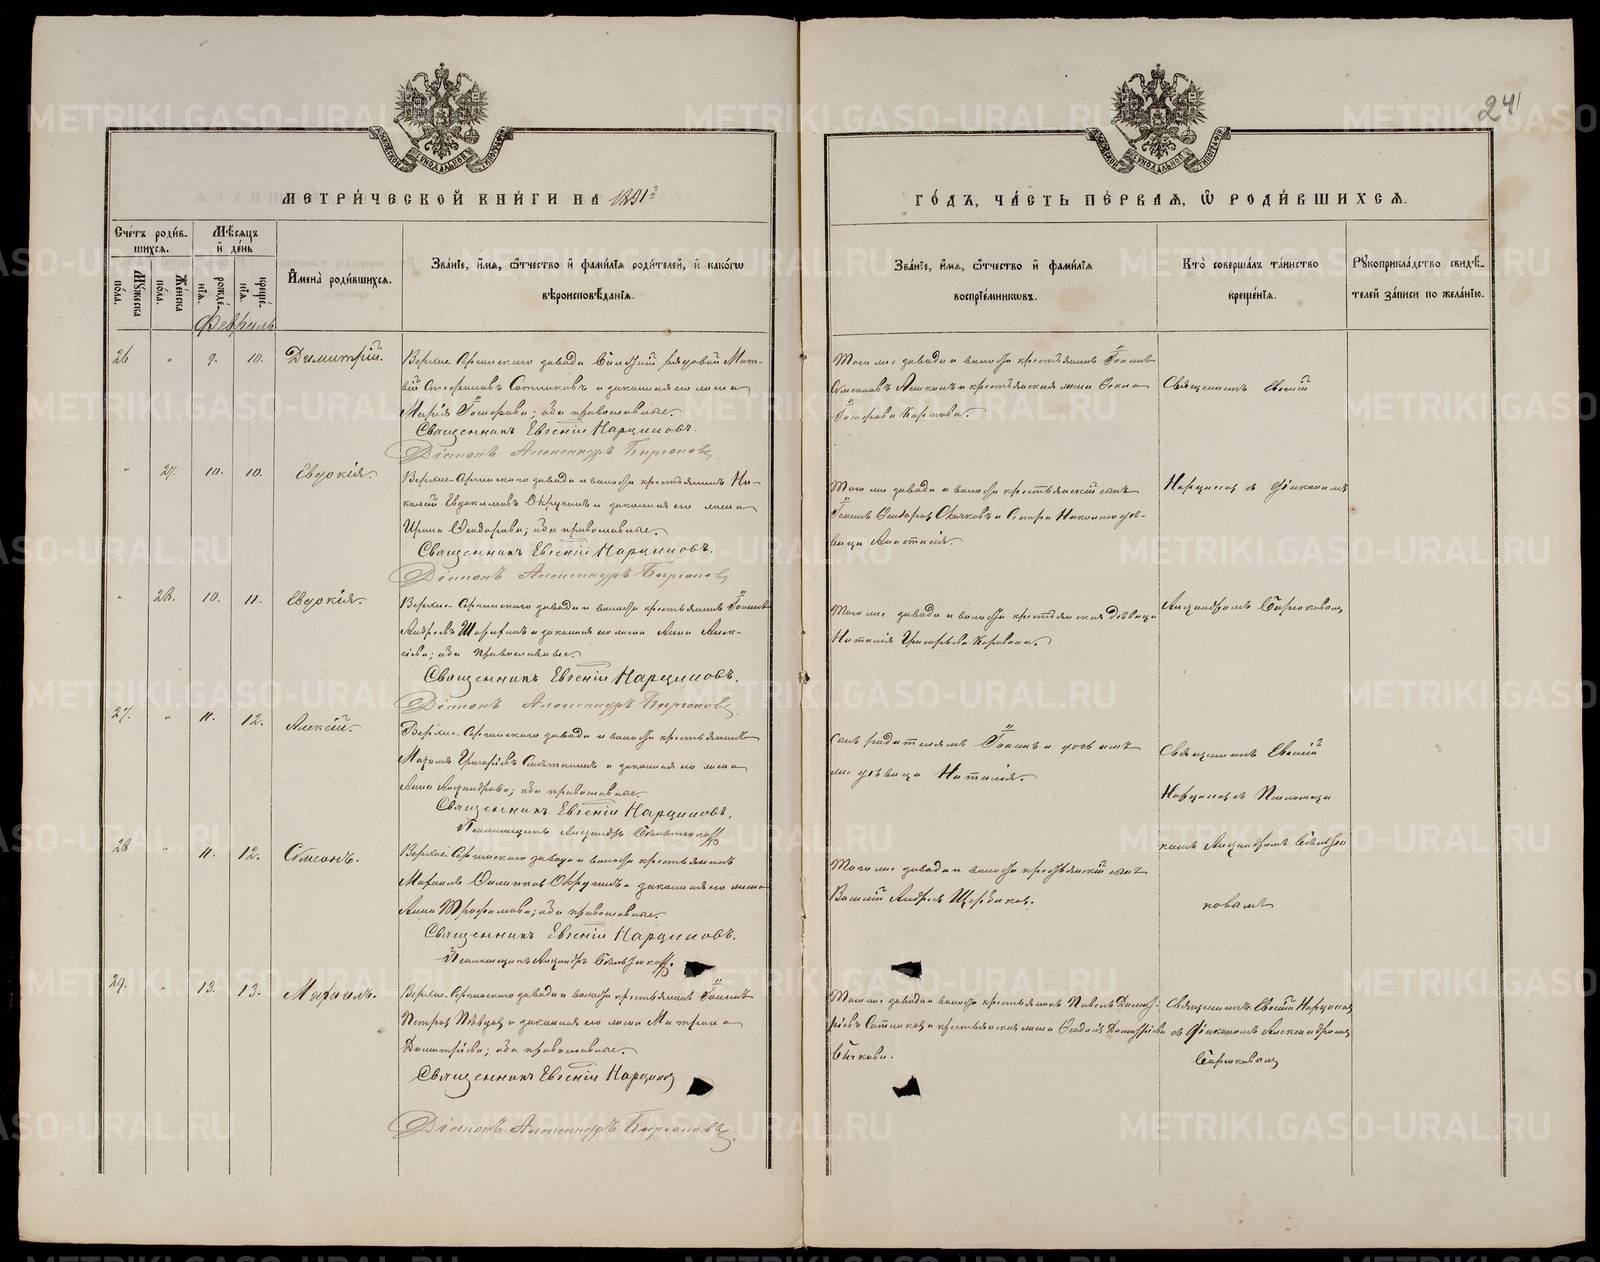 24
МЕТРИ́ЧЕСКОЙ КНИ́ГИ НА 1891й
ГО́ДЪ, ЧА́СТЬ ПЕ́РВАѦ, Ѽ РОДИ́ВШИХСѦ.
Сче́тъ роди́в-
шихсѧ.
Мѣ́сѧцъ
и҆ де́нь
Мꙋ́жеска
по́ла.
Же́нска
по́ла.
рожде́-
нїѧ.
креще́-
нїѧ.
И҆мена̀ роди́вшихсѧ.
Зва́нїе, и҆́мѧ, ѻ҆́тчество и҆ фами́лїѧ роди́телей, и҆ како́гѡ
вѣроисповѣ́данїѧ.
Зва́нїе, и҆́мѧ, ѻ҆́тчество и҆ фами́лїѧ
воспрїе́мникѡвъ.
Кто̀ соверша́лъ та́инство
креще́нїѧ.
Рꙋкоприкла́дство свидѣ́-
телей за́писи по жела́нїю.
Февраль
26 „ 9. 10. Димитрій.
Верхне-Сергинскаго завода рядовой Мат-
вій Стефановъ Сотниковъ и законная его жена
Марія Іоакова; оба православные.
Священникъ Евгеній Нарциссовъ.
Діаконъ Александръ Бирюковъ.
Того же завода и волости крестьянинъ Іоаннъ
и крестьянская жена
Карпова.
Священникъ Евгеній
„ 27. 10. 10. Евдокія.
Верхне-Сергинскаго завода и волости крестьянинъ Ни-
колай Евдокимовъ и законная его жена
Ирина Ѳеодорова; оба православные.
Священникъ Евгеній Нарциссовъ.
Діаконъ Александръ Бирюковъ
Того же завода и волости крестьянскій сынъ
Іоаннъ Ѳеодоровъ и сестра
вица Анастасія.
Нарциссовъ съ діакономъ
„ 28. 10. 11. Евдокія.
Верхне-Сергинскаго завода и волости крестьянинъ Іоаннъ
Андреевъ и законная его жена Анна Алек-
сѣева; оба православные.
Священникъ Евгеній Нарциссовъ.
Діаконъ Александръ Бирюковъ.
Того же завода и волости крестьянская дѣвица
Наталія Григорьева.
Александромъ Бирюковымъ
27. „ 11. 12. Алексій.
Верхне-Сергинскаго завода и волости крестьянинъ
Григорьевъ и законная его жена
Анна Александрова; оба православные.
Священникъ Евгеній Нарциссовъ.
Псаломщикъ Александръ
сынъ Іоаннъ и дочь ихъ
же дѣвица Наталія.
Священникъ Евгеній
Нарциссовъ съ Псаломщи-
комъ Александромъ
ковымъ
28 „ 11. 12. Симеонъ.
Верхне-Сергинскаго завода и волости крестьянинъ
Филипповъ и законная его жена
Анна Трофимова; оба православные.
Священникъ Евгеній Нарциссовъ.
Псаломщикъ Александръ
Того же завода и волости крестьянскій сынъ
Василій Андреевъ Щербаковъ.
29. „ 13. 13. Михаилъ.
Верхне-Сергинскаго завода и волости крестьянинъ Іоаннъ
Петровъ Пѣвцовъ и законная его жена Матрона
Димитріева; оба православные.
Священникъ Евгеній Нарциссовъ
Діаконъ Александръ Бирюковъ.
Того же завода и волости крестьянинъ Павелъ Димит-
ріевъ Сотниковъ и крестьянская жена Димитріева
Бычкова.
Священникъ Евгеній Нарциссовъ
съ діакономъ Александромъ
Бирюковымъ
METRIKI.GASO-URAL.RU